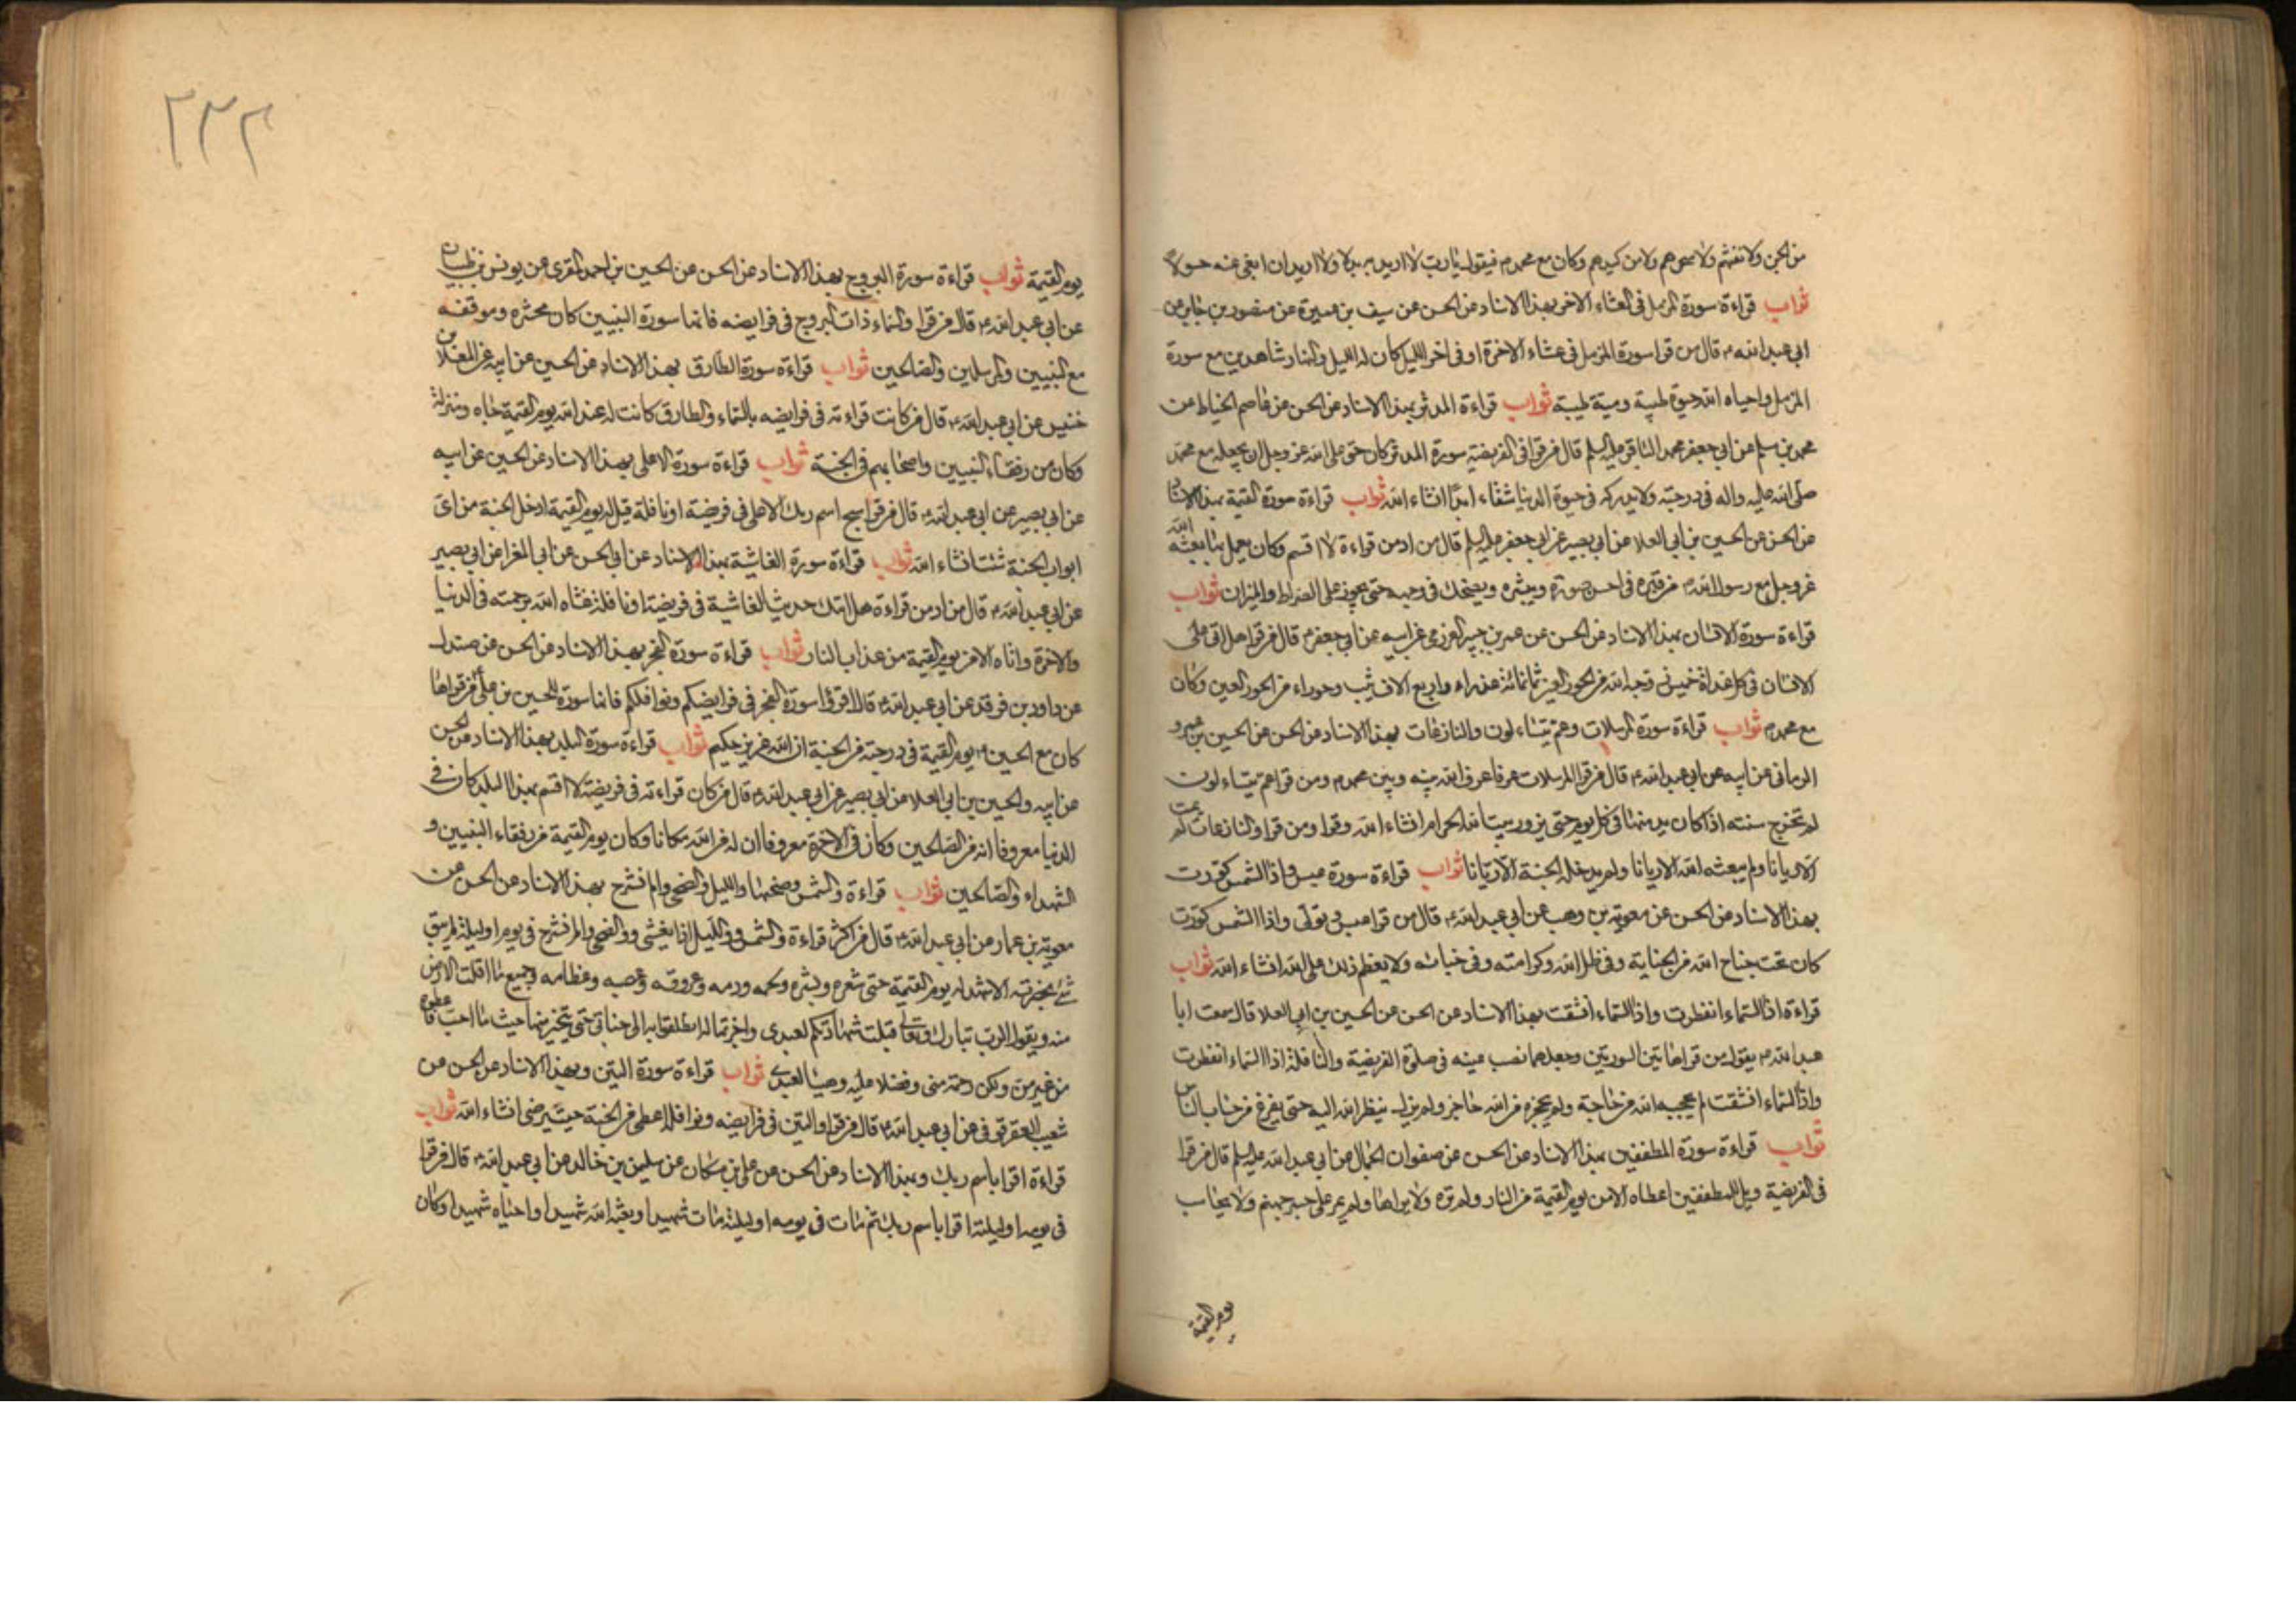 من الجن ولا نفثهم ولا سحرهم ولا من كيدهم وكان مع محمد م فيقول يا رب لا اريد به بدلا ولا اريد ان ابغي عنه حولا
ثواب قراءة سورة المزمل في العشاء الاخر بهذا الاسناد عن الحسن عن سيف بن عميرة عن منصور بن حازم عن
ابي عبد الله ع قال من قرا سورة المزمل في عشاء الاخرة او في اخر الليل كان له الليل والنهار شاهدين مع سورة
المزمل واحياه الله حيوة طيبة وميتة طيبة ثواب قراءة المدثر بهذا الاسناد عن الحسن عن عاصم الخياط عن
محمد بن مسلم عن ابي جعفر محمد الباقر عليه السلم قال من قرا في الفريضة سورة المدثر كان حق على الله عز وجل ان يجعله مع محمد
صلى الله عليه واله في درجته ولا يدركه في حيوة الدنيا شقاء ابدا انشاء الله ثواب قراءة سورة القيمة بهذا الاسناد
عن الحسن عن الحسين بن ابي العلا عن ابي بصير عن ابي جعفر عليه السلم قال من ادمن قراءة لا اقسم وكان يعمل بها بعثه الله
عز وجل مع رسول الله م من قبره في احسن صورة ويبشره ويضحك في وجهه حتى يجوز على الصراط والميزان ثواب
قراءة سورة الانسان بهذا الاسناد عن الحسن عن عمر بن جبير العزرمي عن ابيه عن ابي جعفر م قال من قرا هل اتى على
الانسان في كل غداة خميس زوجه الله من الحور العين ثمانمائة عذراء واربع الاف ثيب وحوراء من الحور العين وكان
مع محمد م ثواب قراءة سورة المرسلات وعم يتساءلون والنازعات بهذا الاسناد عن الحسن عن الحسين بن عمرو
الرماني عن ابيه عن ابي عبد الله ع قال من قرا المرسلات عرفا عرف الله بينه وبين محمد م ومن قرا عم يتساءلون
لم تخرج سنته اذا كان يدمنها في كل يوم حتى يزور بيت الله الحرام انشاء الله وقرا ومن قرا والنازعات لم يمت
الا ريانا ولم يبعثه الله الا ريانا ولم يدخله الجنة الا ريانا ثواب قراءة سورة عبس واذا الشمس كورت
بهذا الاسناد عن الحسن عن معوية بن وهب عن ابي عبد الله ع قال من قرا عبس وتولى واذا الشمس كورت
كان تحت جناح الله من الجناية وفي ظل الله وكرامته وفي جناته ولا يعظم ذلك على الله انشاء الله ثواب
قراءة اذا السماء انفطرت واذا السماء انشقت بهذا الاسناد عن الحسن عن الحسين بن ابي العلا قال سمعت ابا
عبد الله م يقول من قرا هاتين السورتين وجعلهما نصب عينه في صلوة الفريضة والنافلة اذا السماء انفطرت
واذا السماء انشقت لم يحجبه الله من حاجة ولم يحجزه من الله حاجز ولم يزل ينظر الله اليه حتى يفرغ من حساب الناس
ثواب قراءة سورة المطففين بهذا الاسناد عن الحسن عن صفوان الجمال عن ابي عبد الله عليه السلم قال من قرا
في الفريضة ويل للمطففين اعطاه الامن يوم القيمة من النار ولم تره ولا يراها ولم يمر على جسر جهنم ولا يحاسب
يوم القيمة
٢٣٢
يوم القيمة ثواب قراءة سورة البروج بهذا الاسناد عن الحسن عن الحسين بن احمد المقري عن يونس بن ظبيان
عن ابي عبد الله ع قال من قرا والسماء ذات البروج في فرايضه فانها سورة النبيين كان محشره وموقفه
مع النبيين والمرسلين والصالحين ثواب قراءة سورة الطارق بهذا الاسناد عن الحسين عن ابيه عن المعلا بن
خنيس عن ابي عبد الله ع قال من كانت قراءته في فرايضه بالسماء والطارق كانت له عند الله يوم القيمة جاه ومنزلة
وكان من رفقاء النبيين واصحابهم في الجنة ثواب قراءة سورة الاعلى بهذا الاسناد عن الحسين عن ابيه
عن ابي بصير عن ابي عبد الله ع قال من قرا سبح اسم ربك الاعلى في فريضة او نافلة قيل له يوم القيمة ادخل الجنة من اي
ابواب الجنة شئت انشاء الله ثواب قراءة سورة الغاشية بهذا الاسناد عن ابي الحسن عن ابي المغرا عن ابي بصير
عن ابي عبد الله ع قال من ادمن قراءة هل اتيك حديث الغاشية في فريضة او نافلة غشاه الله برحمته في الدنيا
والاخرة واتاه الامن يوم القيمة من عذاب النار ثواب قراءة سورة الفجر بهذا الاسناد عن الحسن عن صندل
عن داود بن فرقد عن ابي عبد الله ع قال اقرؤا سورة الفجر في فرايضكم ونوافلكم فانها سورة للحسين بن علي ع من قراها
كان مع الحسين ع يوم القيمة في درجته من الجنة ان الله عزيز حكيم ثواب قراءة سورة البلد بهذا الاسناد عن الحسن
عن ابيه والحسين بن ابي العلا عن ابي بصير عن ابي عبد الله ع قال من كان قراءته في فريضة لا اقسم بهذا البلد كان في
الدنيا معروفا انه من الصالحين وكان في الاخرة معروفا ان له من الله مكانا وكان يوم القيمة من رفقاء النبيين و
الشهداء والصالحين ثواب قراءة والشمس وضحيها والليل والضحى والم نشرح بهذا الاسناد عن الحسن عن
معوية بن عمار عن ابي عبد الله ع قال من اكثر قراءة والشمس والليل اذا يغشى والضحى والم نشرح في يوم او ليلة لم يبق
شئ بحضرته الا شهد له يوم القيمة حتى شعره وبشره ولحمه ودمه وعروقه وعصبه وعظامه وجميع ما اقلت الارض
منه ويقول الرب تبارك وتعالى قبلت شهادتكم لعبدي واجزتها له انطلقوا به الى جناتي حتى يتخير منها حيث ما احب فاعطوه
من غير من ولكن رحمة مني وفضلا عليه وهنيئا لعبدي ثواب قراءة سورة التين وبهذا الاسناد عن الحسن عن
شعيب العقرقوفي عن ابي عبد الله ع قال من قرا والتين في فرايضه ونوافله اعطي من الجنة حيث يرضى انشاء الله ثواب
قراءة اقرا باسم ربك وبهذا الاسناد عن الحسن عن علي بن مسكان عن سليمن بن خالد عن ابي عبد الله ع قال من قرا
في يومه او ليلته اقرا باسم ربك ثم مات في يومه او ليلته مات شهيدا وبعثه الله شهيدا واحياه شهيدا وكان